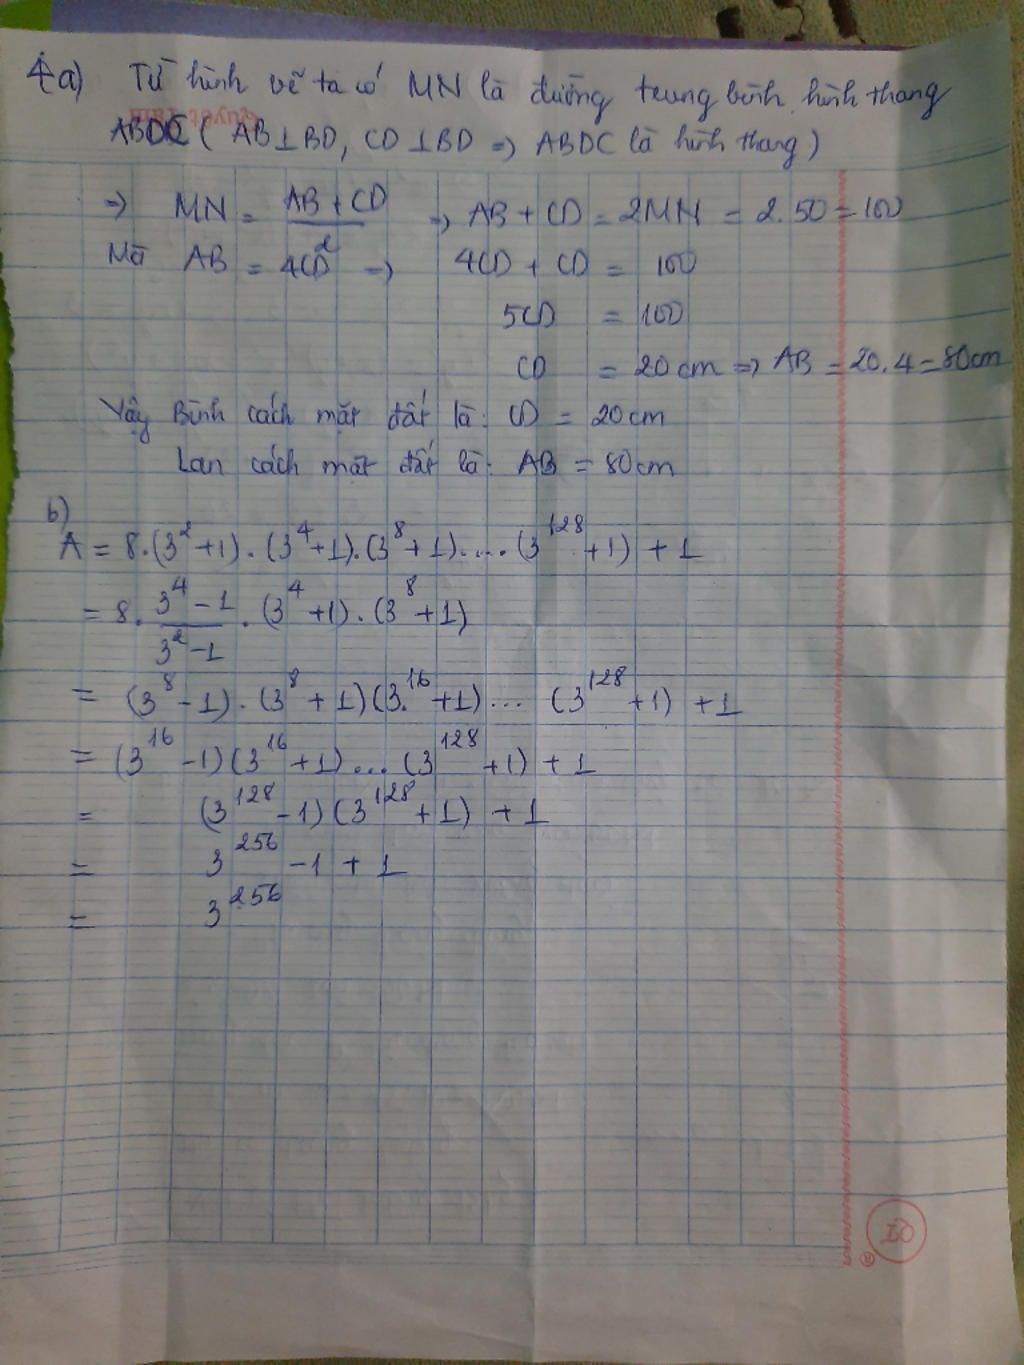 4a) Từ hình vẽ ta có MN là đường trung bình hình thang
ABDC ( AB⊥BD, CD⊥BD => ABDC là hình thang)
=> MN = (AB + CD)/2 => AB + CD = 2MN = 2.50 = 100
Mà AB = 4CD => 4CD + CD = 100
5CD = 100
CD = 20 cm => AB = 20.4 = 80cm
Vậy Bình cách mặt đất là: CD = 20cm
Lan cách mặt đất là: AB = 80cm
b)
A = 8.(3²+1).(3⁴+1).(3⁸+1).....(3¹²⁸+1) + 1
= 8. (3⁴-1)/(3²-1) .(3⁴+1).(3⁸+1)
= (3⁸-1).(3⁸+1)(3.¹⁶+1)... (3¹²⁸+1) +1
= (3¹⁶-1)(3¹⁶+1)...(3¹²⁸+1) + 1
= (3¹²⁸-1)(3¹²⁸+1) + 1
= 3²⁵⁶ -1 + 1
= 3²⁵⁶